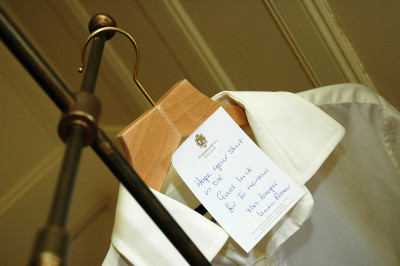 Hope your shirt
is ok
Good luck
for Tomorrow
Linen Room